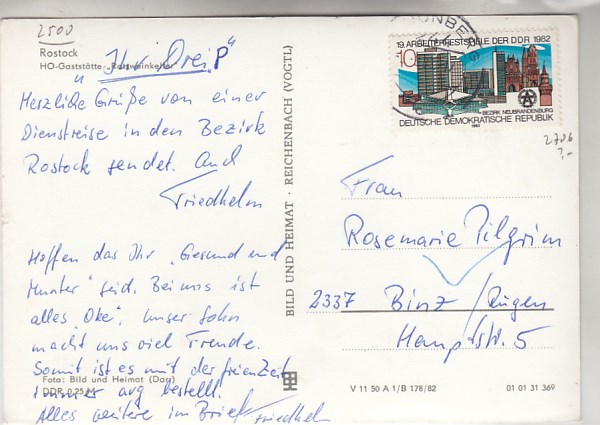 2500
Rostock
HO-Gaststätte „Ratsweinkeller"
„Ihr Drei „P"
Herzliche Grüße von einer
Dienstreise in den Bezirk
Rostock sendet. Auch
Friedhelm
Hoffen das Ihr „Gesund und
Munter" seid. Bei uns ist
alles „Oke". Unser Sohn
macht uns viel Freude.
Somit ist es mit der freien Zeit
immer arg bestellt.
Alles weitere im Brief Friedhelm
Foto: Bild und Heimat (Darr)
DDR 0,25 M
BILD UND HEIMAT · REICHENBACH (VOGTL)
19. ARBEITERFESTSPIELE DER DDR 1982
10
BEZIRK NEUBRANDENBURG
DEUTSCHE DEMOKRATISCHE REPUBLIK
1982
Frau
Rosemarie Pilgrim
2337 Binz /Rügen
Hauptstr. 5
V 11 50 A 1/B 178/82
01 01 31 369